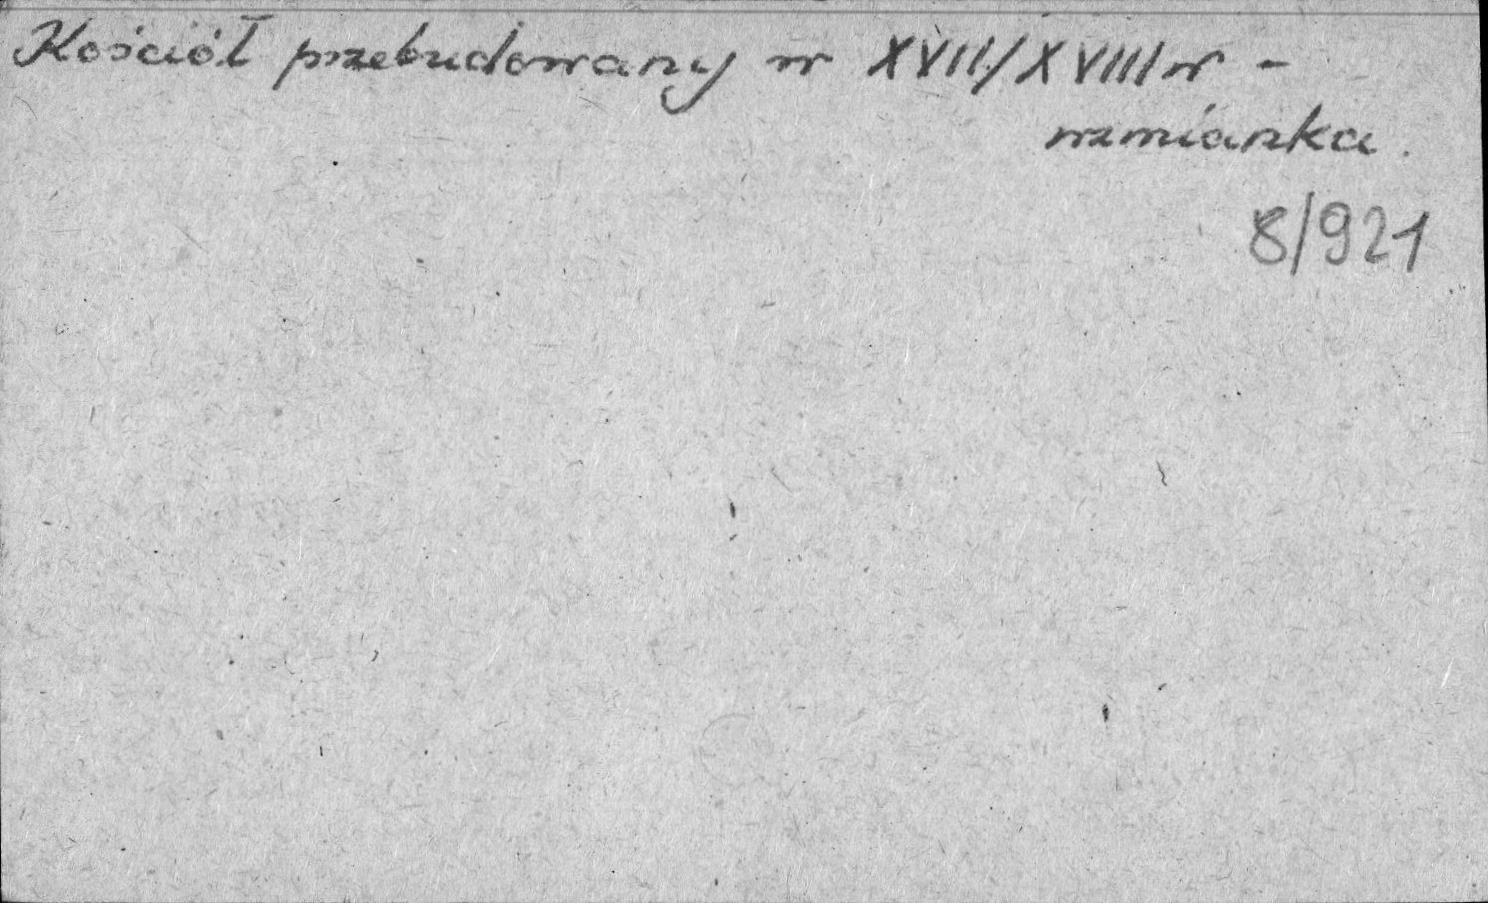 Kościół przebudowany w XVII/XVIII w -
wzmianka.
8/921